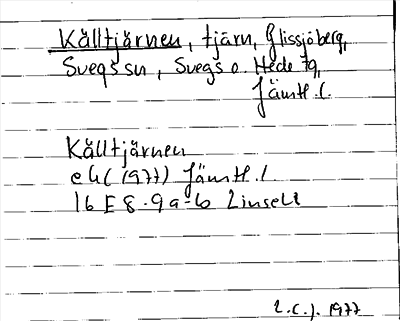 Källtjärnen, tjärn, Glissjöberg,
Svegs sn, Svegs o. Hede tg,
Jämtl. l.
Källtjärnen
ek (1977) Jämtl. l
16 E 8-9 a-b Linsell
L.C.J. 1977